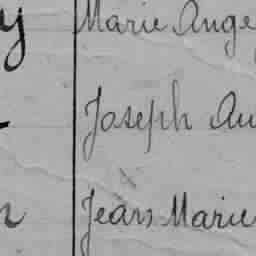 y Marie Ange
Joseph Au
n Jean Marie